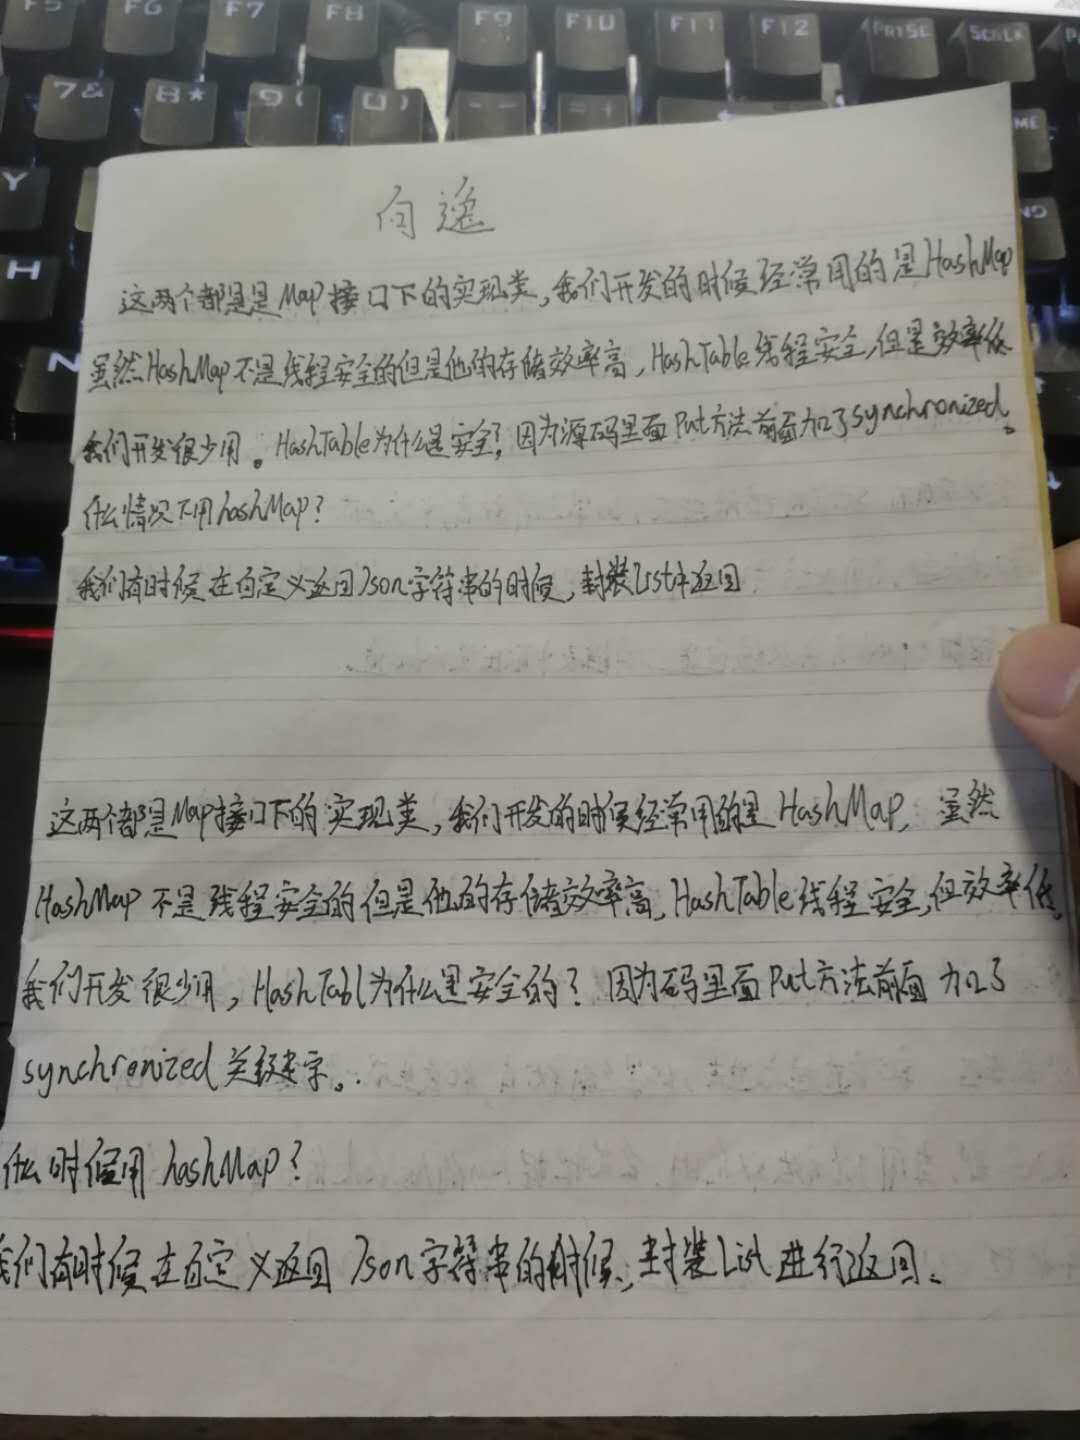 F5 F6 F7 F8 F9 F10 F11 F12 PRTSC SCRLK
7& 8* 9( 0) -- =+
Y
H
N
向逸
这两个都是是Map接口下的实现类,我们开发的时候经常用的是HashMap
虽然HashMap不是线程安全的但是他的存储效率高,HashTable线程安全,但是效率低
我们开发很少用。HashTable为什么是安全?因为源码里面Put方法前面加了synchronized。
什么情况下用hashMap?
我们有时候在自定义返回Json字符串的时候,封装List中返回
这两个都是Map接口下的实现类,我们开发的时候经常用的是HashMap, 虽然
HashMap不是线程安全的但是他的存储效率高,HashTable线程安全,但效率低,
我们开发很少用,HashTabl为什么是安全的?因为码里面Put方法前面加了
synchronized关键字。.
什么时候用hashMap?
我们有时候在自定义返回Json字符串的时候,封装List进行返回。